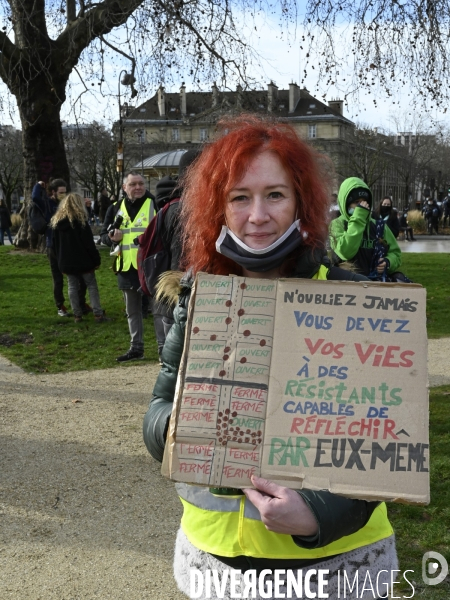 OUVERT OUVERT
OUVERT OUVERT
OUVERT OUVERT
OUVERT OUVERT
OUVERT OUVERT
OUVERT OUVERT
FERMÉ FERMÉ
FERMÉ FERMÉ
FERMÉ
FERMÉ FERMÉ
FERMÉ FERMÉ
N'OUBLIEZ JAMAIS
VOUS DEVEZ
VOS VIES
À DES
RÉSISTANTS
CAPABLES DE
RÉFLÉCHIR
PAR EUX-MÊME
DIVERGENCE IMAGES